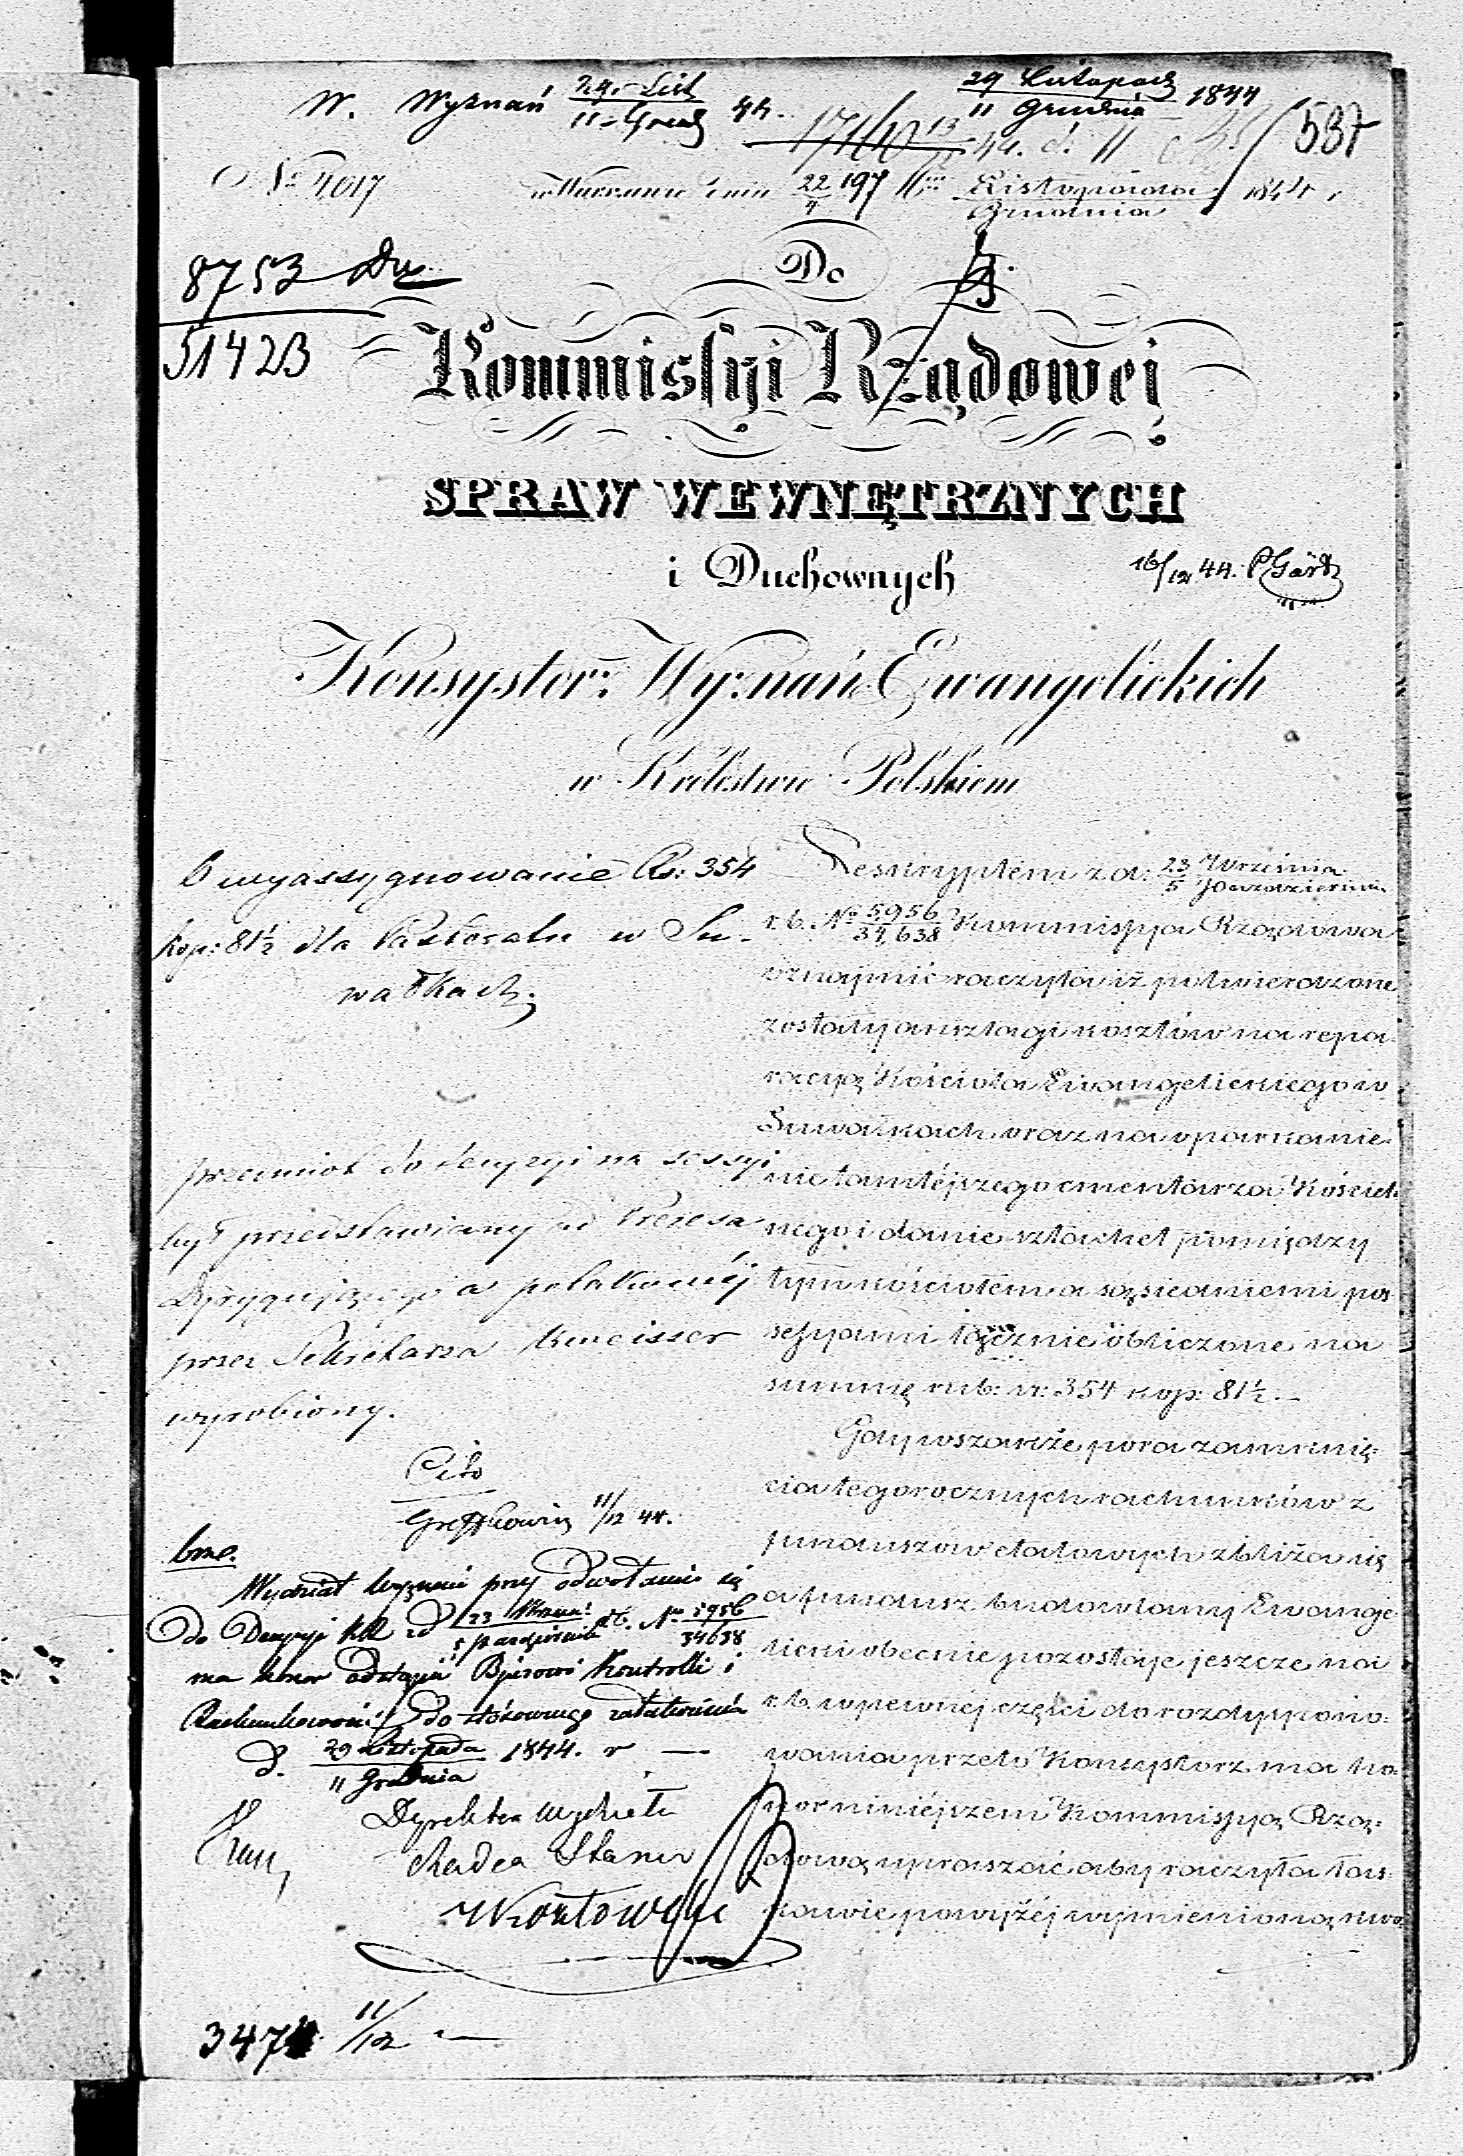 W. Wyznań 29 List / 11 Grud 44.
29 Listopada / 11 Grudnia 1844
587
No 1017
w Warszawie dnia 22 / 4 Listopada / Grudnia 1844 r.
8753
51423
Do
Kommissyi Rządowej
SPRAW WEWNĘTRZNYCH
i Duchownych
16/12 44.
Konsystorz Wyznań Ewangelickich
w Królestwie Polskiem
O wyassygnowanie Rs: 354
kop: 81½ dla Pastoratu w Su-
wałkach.
przedmiot do decyzyi na sessyi
był przedstawiony
Dyrygującego a
przez Sekretarza
wyrobiony.
Cito
11/12 44.
Wydział Wyznań przy odwołaniu się
do Decyzyi KR z d 23 Wrześ: / 5 Październik rb. No 5956 / 34638
ma honor odstąpić Bjurowi Kontrolli i
Rachunkowości do stósownego załatwienia
d. 29 Listopada / 11 Grudnia 1844. r —
Dyrektor Wydziału
Radca Stanu
3474 11/12 —
Reskryptem z d: 23 Września / 5 Października
r.b. No 5956 / 34,638 Kommissya Rządowa
oznajmić raczyła iż potwierdzone
zostały anszlagi kosztów na repa-
racyą Kościoła Ewangelickiego w
Suwałkach oraz na oparkanie-
nie tamtéjszego cmentarza Kościel-
nego i danie sztachet pomiędzy
tym kościołem a sąsiedniemi pos-
sessyami łącznie obliczone na
summę rub: sr: 354 kop: 81½. —
Gdy wszakże pora zamknię-
cia tegorocznych rachunków z
funduszów etatowych zbliża się
a fundusz budowlany Ewange-
licki obecnie pozostaje jeszcze na
r.b. w pewnej części do rozdyspono-
wania przeto Konsystorz ma ho-
nor niniéjszem Kommissyą Rzą-
dową upraszać aby raczyła łas-
kawie powyżéj wymienioną kwo